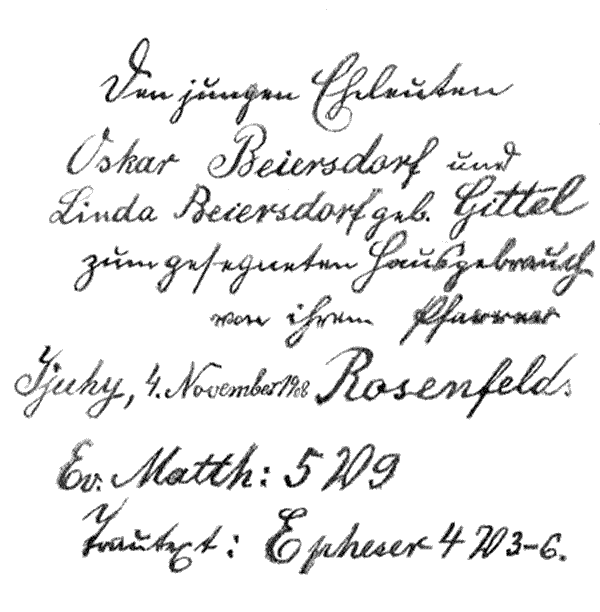 Den jungen Eheleuten
Oskar Beiersdorf und
Linda Beiersdorf geb. Gittel
zum gesegneten Hausgebrauch
von ihrem Pfarrer
4. November 1908 Rosenfeld.
Ev. Matth: 5 V 9
Trautext: Epheser 4 V 3-6.